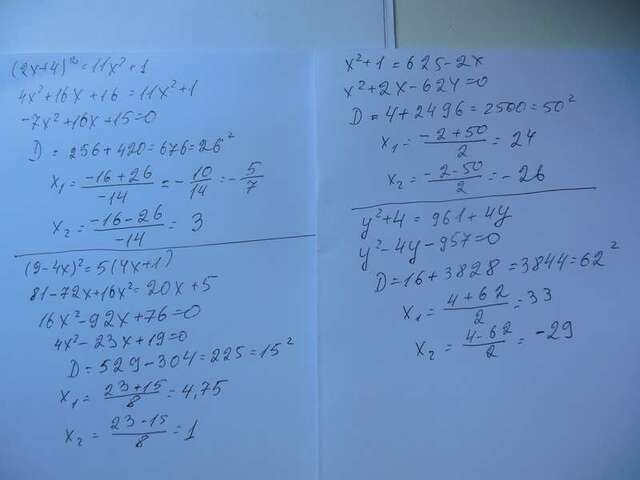 (2x+4)² = 11x²+1
4x²+16x+16=11x²+1
-7x²+16x+15=0
D = 256+420=676=26²
x₁ = (-16+26)/(-14) = -10/14 = -5/7
x₂ = (-16-26)/(-14) = 3
(9-4x)²=5(4x+1)
81-72x+16x²=20x+5
16x²-92x+76=0
4x²-23x+19=0
D=529-304=225=15²
x₁ = (23+15)/8 = 4,75
x₂ = (23-15)/8 = 1
x²+1=625-2x
x²+2x-624=0
D=4+2496=2500=50²
x₁ = (-2+50)/2 = 24
x₂ = (-2-50)/2 = -26
y²+4=961+4y
y²-4y-957=0
D=16+3828=3844=62²
x₁ = (4+62)/2 = 33
x₂ = (4-62)/2 = -29